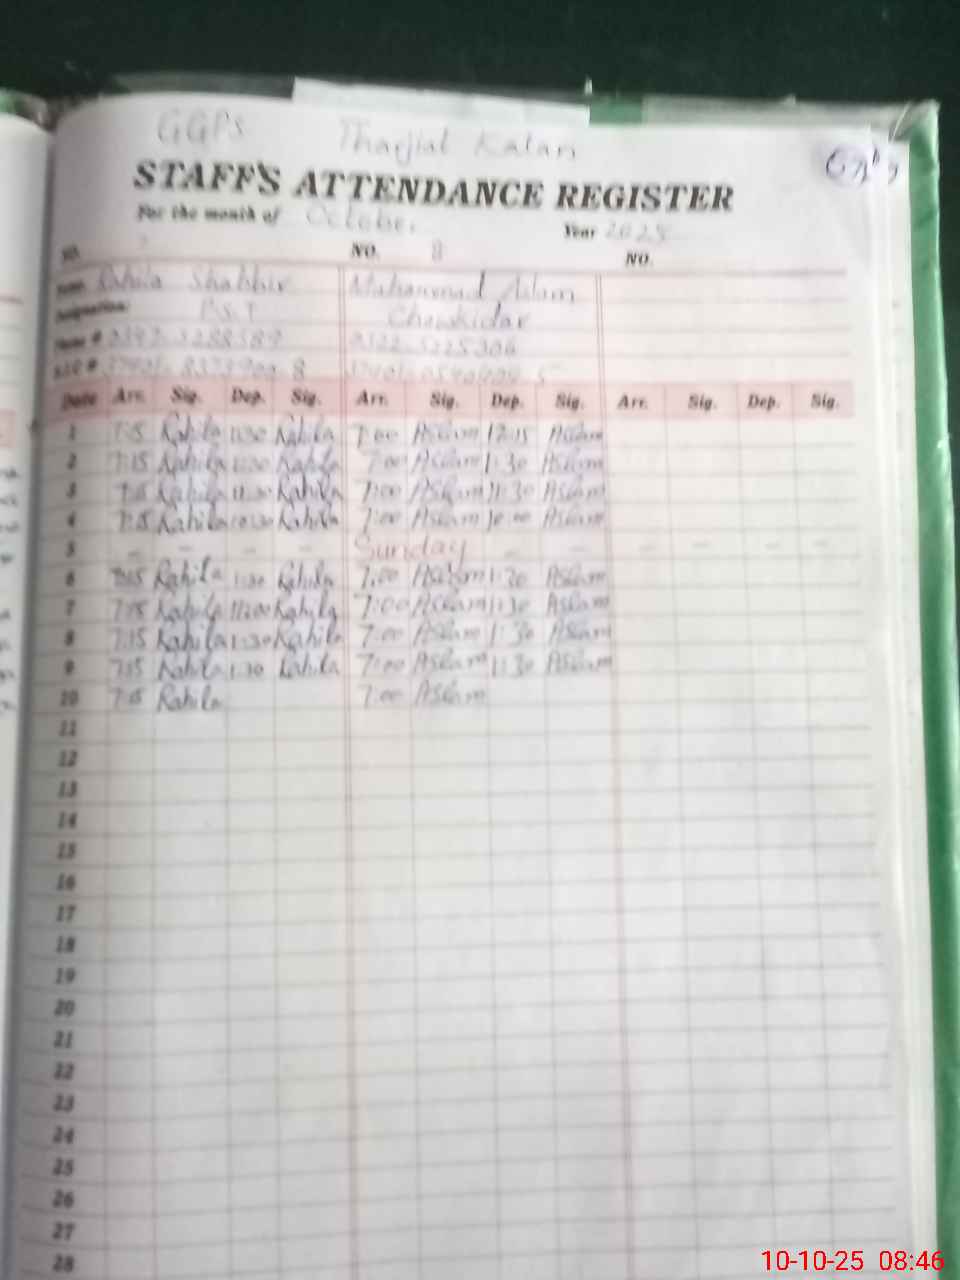 GGPS Tharjial Kalan
STAFF'S ATTENDANCE REGISTER
For the month of October Year 2025
NO. NO. 8 NO.
Rahila Shabbir Muhammad Aslam
Designation: P.S.T Chowkidar
Date Arr. Sig. Dep. Sig. Arr. Sig. Dep. Sig. Arr. Sig. Dep. Sig.
1 7:15 Rahila 11:30 Rahila 7:00 Aslam 12:15 Aslam
2 7:15 Rahila Rahila 7:00 Aslam 1:30 Aslam
3 Rahila Rahila 7:00 Aslam 11:30 Aslam
4 7:15 Rahila 10:30 Rahila 7:00 Aslam 10:00 Aslam
5 – – – – Sunday – – – – – –
6 7:15 Rahila 1:30 Rahila 7:00 Aslam 1:30 Aslam
7 7:15 Rahila Rahila 7:00 Aslam 1:30 Aslam
8 7:15 Rahila 1:30 Rahila 7:00 Aslam 1:30 Aslam
9 7:15 Rahila 1:30 Rahila 7:00 Aslam 11:30 Aslam
10 7:15 Rahila 7:00 Aslam
11
12
13
14
15
16
17
18
19
20
21
22
23
24
25
26
27
28
10-10-25 08:46